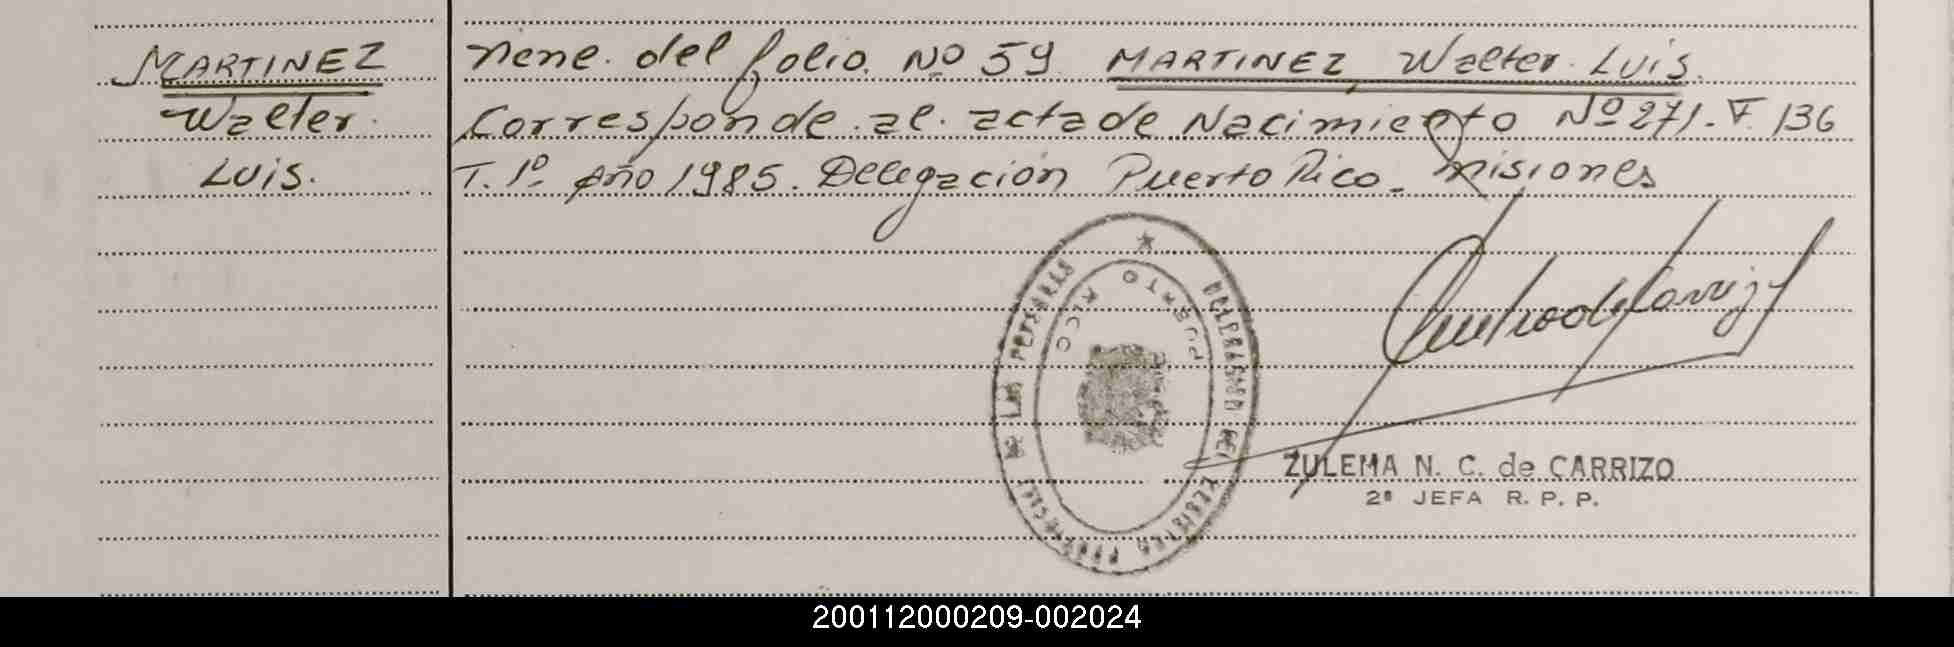 MARTINEZ
Walter
Luis.
Viene. del folio. Nº 59 MARTINEZ, Walter. Luis.
Corresponde. al. acta de Nacimiento Nº 271. F. 136
T. 1º. Año 1985. Delegación Puerto Rico. Misiones
DELEGACION DEL REGISTRO PROVINCIAL DE LAS PERSONAS
PUERTO RICO
ZULEMA N. C. de CARRIZO
2ª JEFA R. P. P.
200112000209-002024